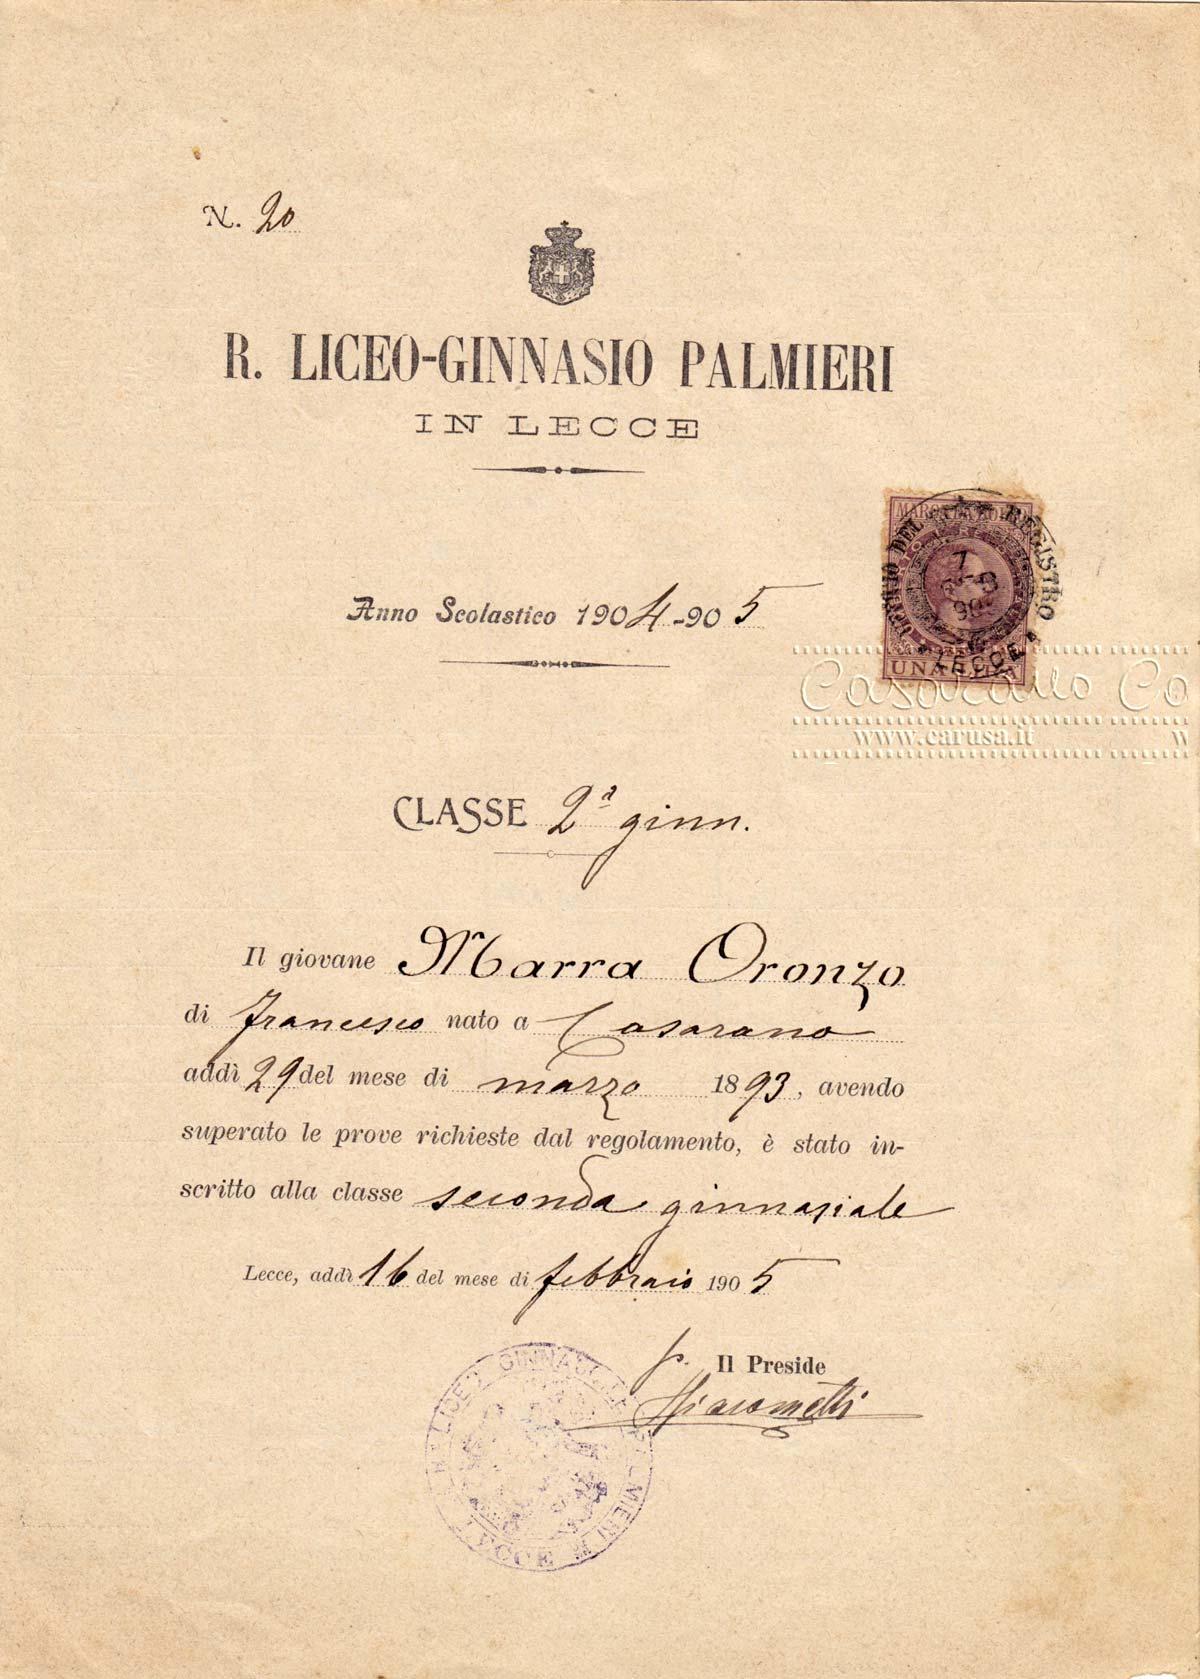 N. 20
R. LICEO-GINNASIO PALMIERI
IN LECCE
MARCA DA BOLLO
UFFICIO DEL REGISTRO
7
905
UNA LIRA
LECCE
Anno Scolastico 1904-905
Casarano Co
www.carusa.it w
CLASSE 2ª ginn.
Il giovane Marra Oronzo
di Francesco nato a Casarano
addì 29 del mese di marzo 1893, avendo
superato le prove richieste dal regolamento, è stato in-
scritto alla classe seconda ginnasiale
Lecce, addì 16 del mese di febbraio 1905
p. Il Preside
Giacometti
LICEO GINNASIALE PALMIERI
LECCE